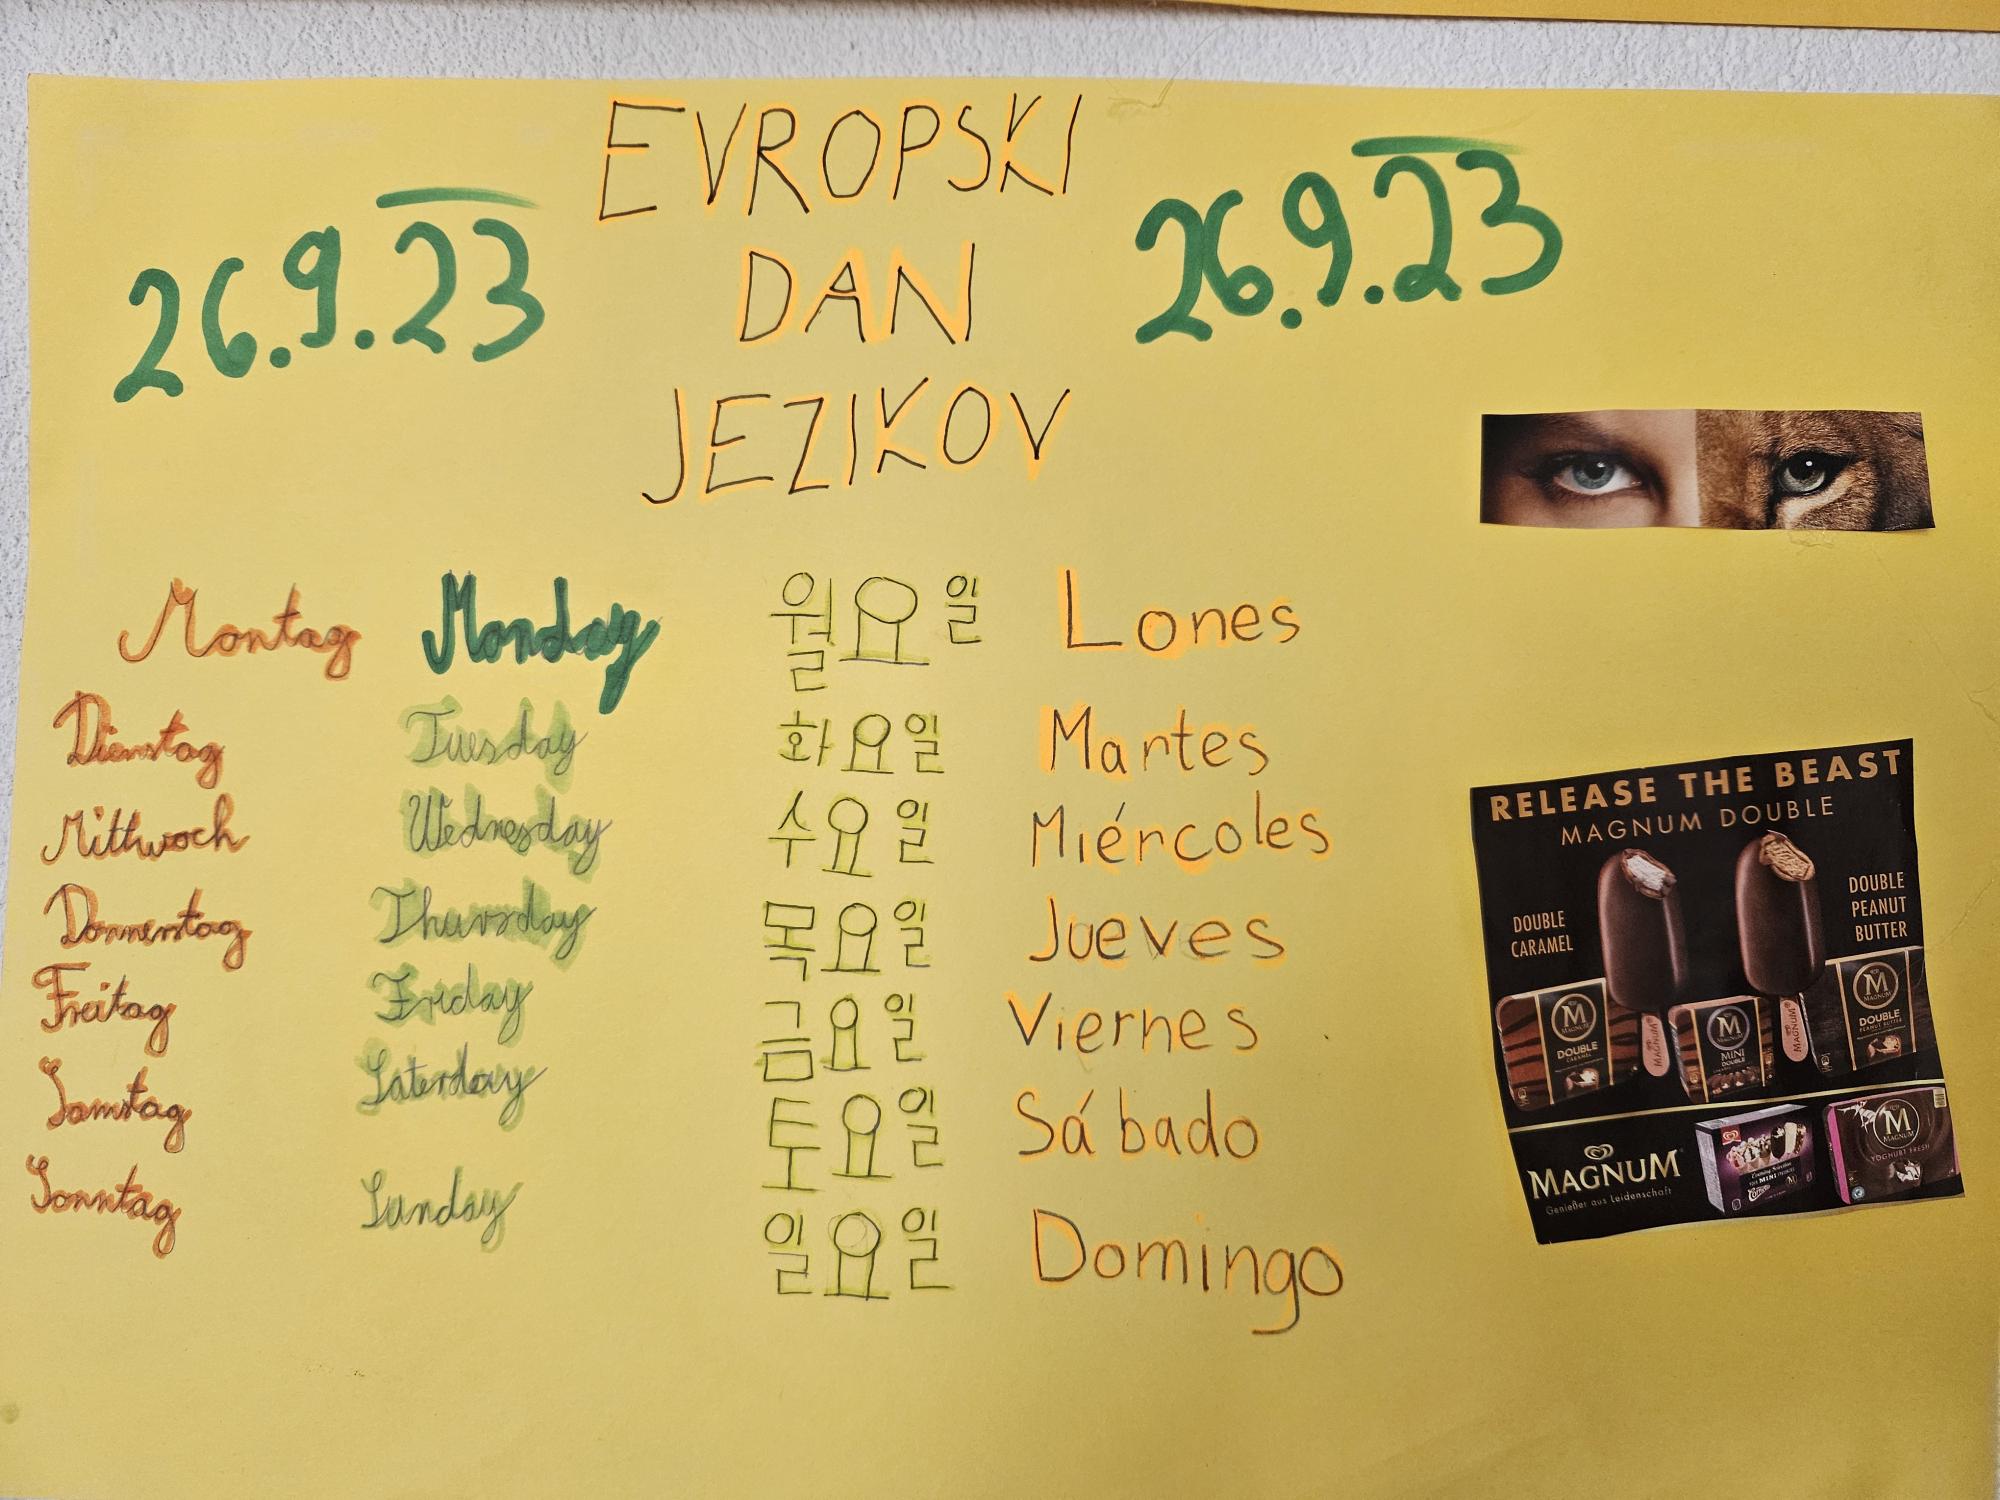 EVROPSKI
DAN
JEZIKOV
26.9.23
26.9.23
Montag Monday 월요일 Lones
Dienstag Tuesday 화요일 Martes
Mittwoch Wednesday 수요일 Miércoles
Donnerstag Thursday 목요일 Jueves
Freitag Friday 금요일 Viernes
Samstag Saterday 토요일 Sábado
Sonntag Sunday 일요일 Domingo
RELEASE THE BEAST
MAGNUM DOUBLE
DOUBLE
CARAMEL
DOUBLE
PEANUT
BUTTER
M
MAGNUM
DOUBLE
CARAMEL
MAGNUM
M
MAGNUM
MINI
DOUBLE
MAGNUM
M
MAGNUM
DOUBLE
PEANUT BUTTER
MAGNUM
Genießer aus Leidenschaft
MINI
M
MAGNUM
YOGHURT FRESH